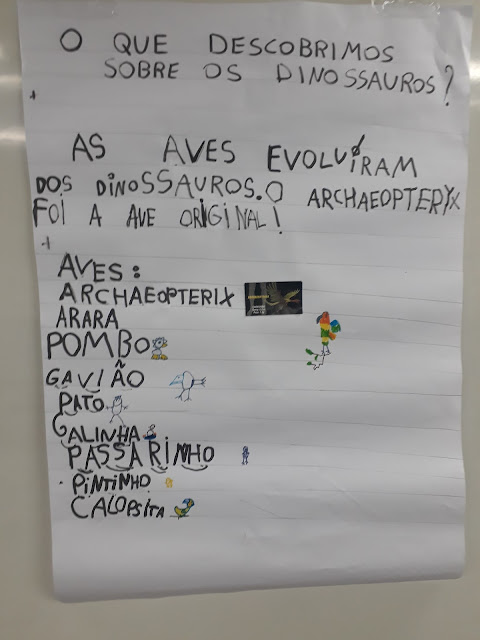 O QUE DESCOBRIMOS
SOBRE OS DINOSSAUROS?
AS AVES EVOLUÍRAM
DOS DINOSSAUROS. O ARCHAEOPTERYX
FOI A AVE ORIGINAL!
AVES:
ARCHAEOPTERIX
ARARA
POMBO
GAVIÃO
PATO
GALINHA
PASSARINHO
PINTINHO
CALOPSITA